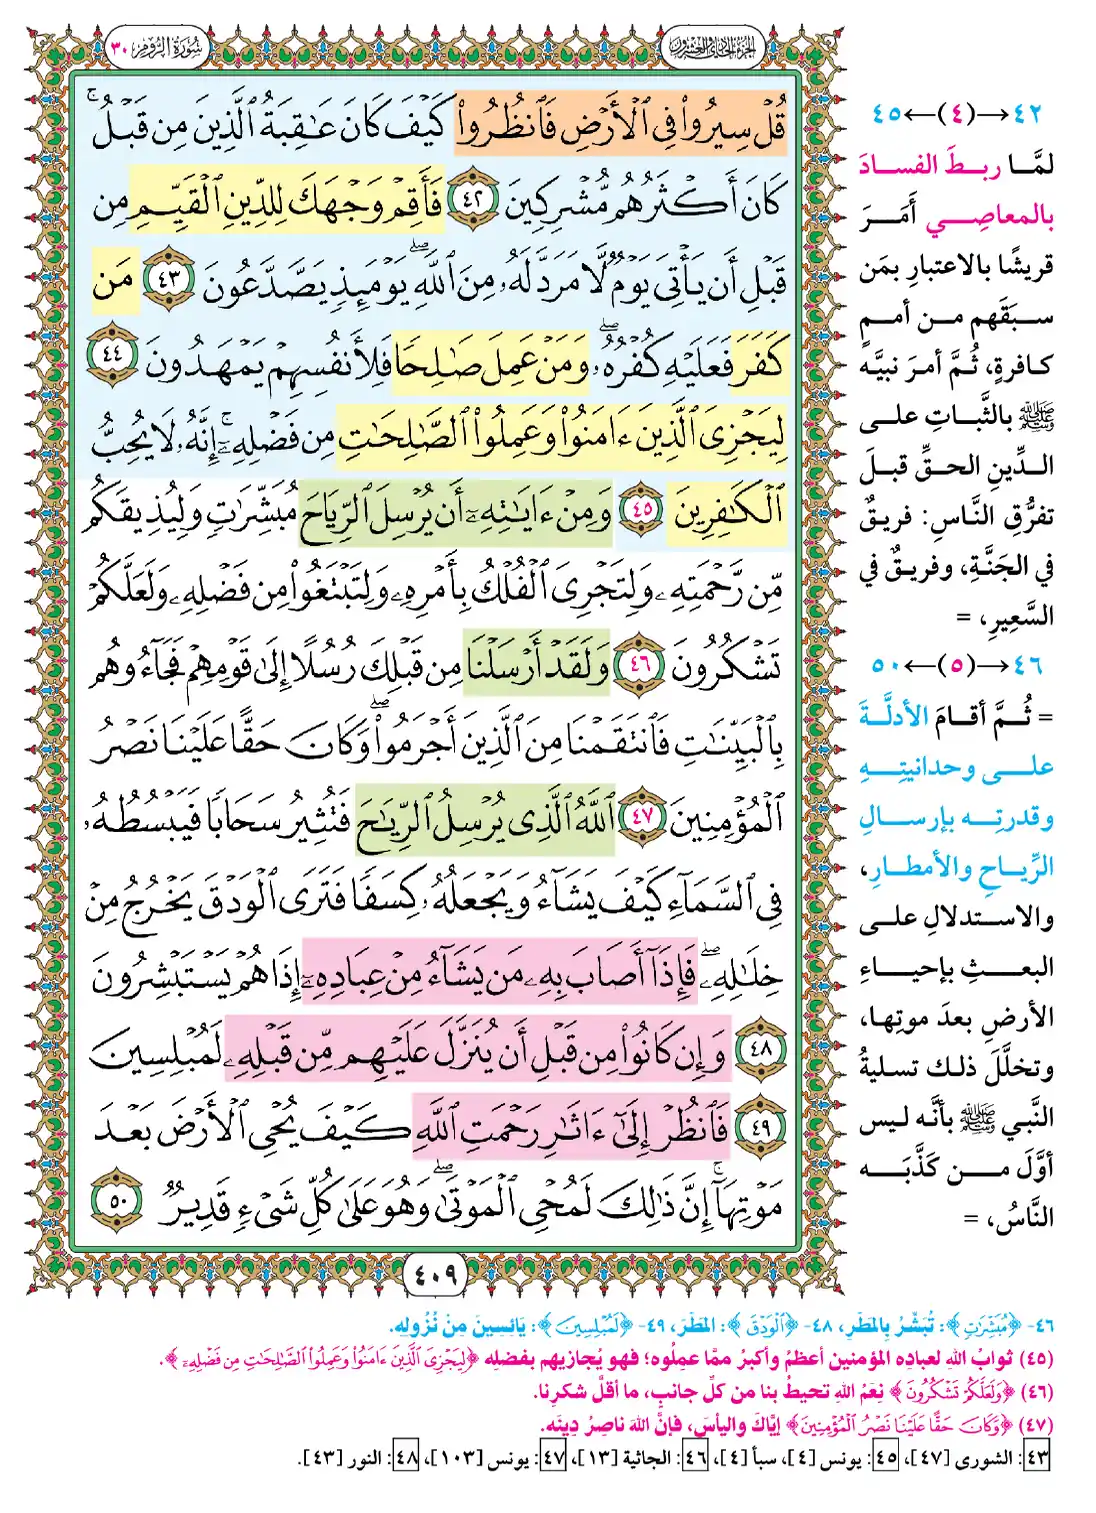 الجزء الحادي والعشرون
سُورَةُ الرُّومِ ٣٠
قُلْ سِيرُوا۟ فِى ٱلْأَرْضِ فَٱنظُرُوا۟ كَيْفَ كَانَ عَـٰقِبَةُ ٱلَّذِينَ مِن قَبْلُ ۚ
كَانَ أَكْثَرُهُم مُّشْرِكِينَ ٤٢ فَأَقِمْ وَجْهَكَ لِلدِّينِ ٱلْقَيِّمِ مِن
قَبْلِ أَن يَأْتِىَ يَوْمٌ لَّا مَرَدَّ لَهُۥ مِنَ ٱللَّهِ ۖ يَوْمَئِذٍ يَصَّدَّعُونَ ٤٣ مَن
كَفَرَ فَعَلَيْهِ كُفْرُهُۥ ۖ وَمَنْ عَمِلَ صَـٰلِحًا فَلِأَنفُسِهِمْ يَمْهَدُونَ ٤٤
لِيَجْزِىَ ٱلَّذِينَ ءَامَنُوا۟ وَعَمِلُوا۟ ٱلصَّـٰلِحَـٰتِ مِن فَضْلِهِۦٓ ۚ إِنَّهُۥ لَا يُحِبُّ
ٱلْكَـٰفِرِينَ ٤٥ وَمِنْ ءَايَـٰتِهِۦٓ أَن يُرْسِلَ ٱلرِّيَاحَ مُبَشِّرَٰتٍ وَلِيُذِيقَكُم
مِّن رَّحْمَتِهِۦ وَلِتَجْرِىَ ٱلْفُلْكُ بِأَمْرِهِۦ وَلِتَبْتَغُوا۟ مِن فَضْلِهِۦ وَلَعَلَّكُمْ
تَشْكُرُونَ ٤٦ وَلَقَدْ أَرْسَلْنَا مِن قَبْلِكَ رُسُلًا إِلَىٰ قَوْمِهِمْ فَجَآءُوهُم
بِٱلْبَيِّنَـٰتِ فَٱنتَقَمْنَا مِنَ ٱلَّذِينَ أَجْرَمُوا۟ ۖ وَكَانَ حَقًّا عَلَيْنَا نَصْرُ
ٱلْمُؤْمِنِينَ ٤٧ ٱللَّهُ ٱلَّذِى يُرْسِلُ ٱلرِّيَـٰحَ فَتُثِيرُ سَحَابًا فَيَبْسُطُهُۥ
فِى ٱلسَّمَآءِ كَيْفَ يَشَآءُ وَيَجْعَلُهُۥ كِسَفًا فَتَرَى ٱلْوَدْقَ يَخْرُجُ مِنْ
خِلَـٰلِهِۦ ۖ فَإِذَآ أَصَابَ بِهِۦ مَن يَشَآءُ مِنْ عِبَادِهِۦٓ إِذَا هُمْ يَسْتَبْشِرُونَ
٤٨ وَإِن كَانُوا۟ مِن قَبْلِ أَن يُنَزَّلَ عَلَيْهِم مِّن قَبْلِهِۦ لَمُبْلِسِينَ
٤٩ فَٱنظُرْ إِلَىٰٓ ءَاثَـٰرِ رَحْمَتِ ٱللَّهِ كَيْفَ يُحْىِ ٱلْأَرْضَ بَعْدَ
مَوْتِهَآ ۚ إِنَّ ذَٰلِكَ لَمُحْىِ ٱلْمَوْتَىٰ ۖ وَهُوَ عَلَىٰ كُلِّ شَىْءٍ قَدِيرٌ ٥٠
٤٠٩
٤٢→(٤)←٤٥
لمَّا ربطَ الفسادَ
بالمعاصِي أَمَرَ
قريشًا بالاعتبارِ بمَن
سبَقَهم من أممٍ
كافرةٍ، ثُمَّ أمرَ نبيَّه
ﷺ بالثَّباتِ على
الدِّينِ الحقِّ قبلَ
تفرُّقِ النَّاسِ: فريقٌ
في الجَنَّةِ، وفريقٌ في
السَّعيرِ، =
٤٦→(٥)←٥٠
= ثُمَّ أقامَ الأدلَّةَ
على وحدانيتِهِ
وقدرتِه بإرسالِ
الرِّياحِ والأمطارِ،
والاستدلالِ على
البعثِ بإحياءِ
الأرضِ بعدَ موتِها،
وتخلَّلَ ذلك تسليةُ
النَّبي ﷺ بأنَّه ليس
أوَّلَ من كَذَّبَه
النَّاسُ، =
٤٦- ﴿مُبَشِّرَٰتٍ﴾: تُبَشِّرُ بِالمَطَرِ، ٤٨- ﴿ٱلْوَدْقَ﴾: المَطَرَ، ٤٩- ﴿لَمُبْلِسِينَ﴾: يَائِسِينَ مِنْ نُزُولِهِ.
(٤٥) ثوابُ اللهِ لعبادِه المؤمنين أعظمُ وأكبرُ ممَّا عملُوه؛ فهو يُجازيهم بفضلِه ﴿لِيَجْزِىَ ٱلَّذِينَ ءَامَنُوا۟ وَعَمِلُوا۟ ٱلصَّـٰلِحَـٰتِ مِن فَضْلِهِۦٓ﴾.
(٤٦) ﴿وَلَعَلَّكُمْ تَشْكُرُونَ﴾ نِعَمُ اللهِ تحيطُ بنا من كلِّ جانبٍ، ما أقلَّ شكرِنا.
(٤٧) ﴿وَكَانَ حَقًّا عَلَيْنَا نَصْرُ ٱلْمُؤْمِنِينَ﴾ إيَّاكَ واليأسَ، فإنَّ اللهَ ناصِرُ دِينِه.
٤٣: الشورى [٤٧]، ٤٥: يونس [٤]، سبأ [٤]، ٤٦: الجاثية [١٣]، ٤٧: يونس [١٠٣]، ٤٨: النور [٤٣].